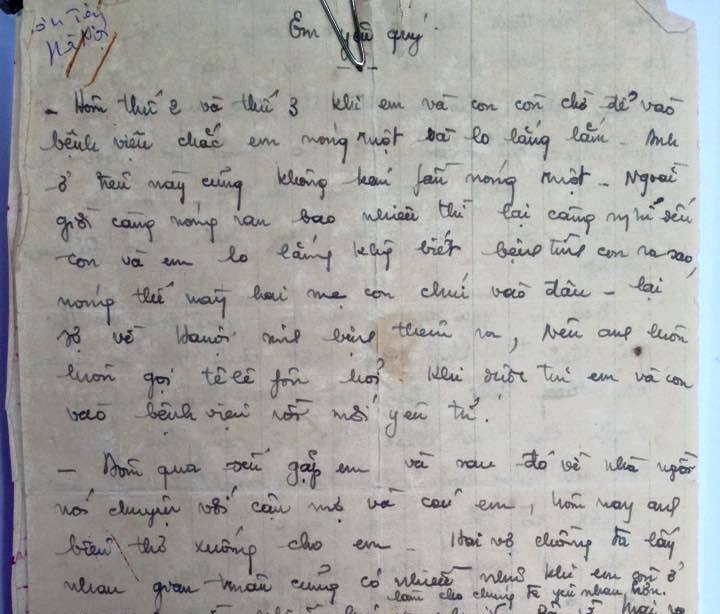 Sơn Tây
Hà Nội
Em yêu quý
- Hôm thứ 2 và thứ 3 khi em và con còn chờ để vào
bệnh viện chắc em nóng ruột và lo lắng lắm - Anh
ở trên này cũng không kém phần nóng ruột - Ngoài
giời càng nóng ran bao nhiêu thì lại càng nghĩ đến
con và em lo lắng không biết bệnh tình con ra sao,
nóng thế này hai mẹ con chui vào đâu - lại
sợ về Hanội sinh bệnh thêm ra, nên anh luôn
luôn gọi têlêfôn hỏi. Khi được tin em và con
vào bệnh viện rồi mới yên trí.
- Hôm qua đến gặp em và sau đó về nhà ngồi
nói chuyện với cậu mợ và các em, hôm nay anh
biên thơ xuống cho em - Hai vợ chồng ta lấy
nhau quan cũng có nhiều khi em còn ở
làm cho chúng ta yêu nhau hơn.